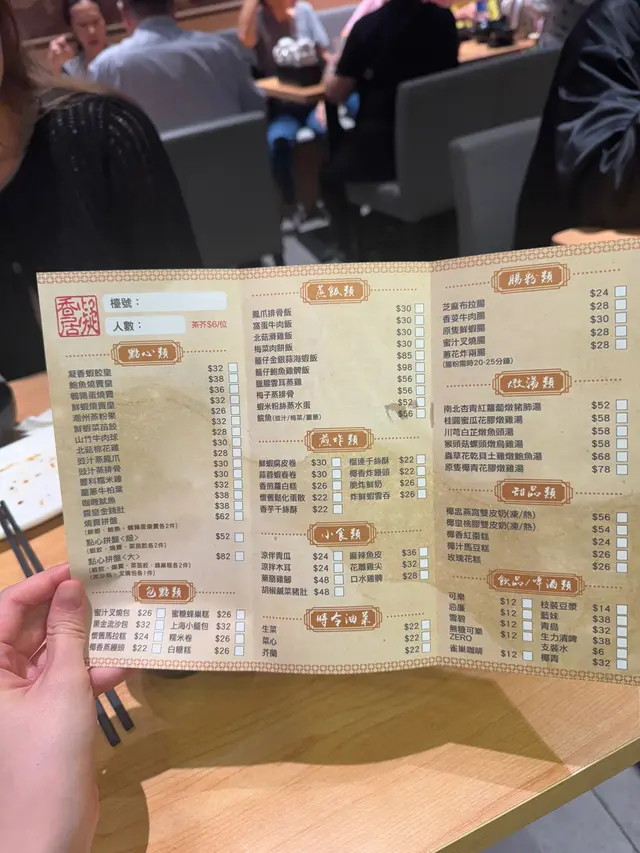 凝香居
檯號：
人數：
茶芥$6/位
點心類
凝香蝦餃皇 $32
鮑魚燒賣皇 $38
鵪鶉蛋燒賣 $36
鮮蝦燒賣皇 $32
潮州蒸粉粿 $26
鮮蝦菜苗餃 $32
山竹牛肉球 $28
北菇棉花雞 $30
豉汁蒸鳳爪 $30
豉汁蒸排骨 $30
醬料糯米雞 $32
薑蔥牛柏葉 $38
咖喱魷魚 $38
賣皇金錢肚 $38
燒賣拼盤 $62
點心拼盤<細> $52
點心拼盤<大> $82
包點類
蜜汁叉燒包 $26
黑金流沙包 $32
懷舊馬拉糕 $24
椰香蒸饅頭 $22
蜜糖蜂巢糕 $26
上海小籠包 $32
糯米卷 $26
白糖糕 $26
蒸飯類
鳳爪排骨飯 $30
窩蛋牛肉飯 $30
北菇滑雞飯 $30
梅菜肉餅飯 $30
籠仔金銀蒜海蝦飯 $85
籠仔鮑魚雞髀飯 $98
臘腸雲耳蒸雞 $56
梅子蒸排骨 $56
蝦米粉絲蒸水蛋 $52
鯇魚(豉汁/梅菜/薑蔥) $56
煎炸類
鮮蝦腐皮卷 $30
蒜蓉蝦春卷 $30
香煎蘿白糕 $26
懷舊鬆化蛋散 $22
香芋千絲酥 $22
榴連千絲酥 $22
椰香炸饅頭 $22
脆炸鮮奶 $26
炸鮮蝦雲吞 $26
小食類
涼伴青瓜 $24
涼拌木耳 $24
藥膳雞腳 $48
胡椒鹹菜豬肚 $48
麻辣魚皮 $36
花雕雞尖 $32
口水雞髀 $28
時令油菜
生菜 $22
菜心 $22
芥蘭 $22
腸粉類
芝麻布拉腸 $24
香荽牛肉腸 $28
原隻鮮蝦腸 $30
蜜汁叉燒腸 $28
蔥花炸兩腸 $28
(腸粉需時20-25分鐘)
燉湯類
南北杏青紅蘿蔔燉豬肺湯 $52
桂圓蜜瓜花膠燉雞湯 $58
川芎白芷燉魚頭湯 $58
猴頭菇螺頭燉烏雞湯 $58
蟲草花乾貝土雞燉鮑魚湯 $68
原隻椰青花膠燉雞湯 $78
甜品類
椰盅燕窩雙皮奶(凍/熱) $56
椰皇桃膠雙皮奶(凍/熱) $54
椰香紅棗糕 $26
椰汁馬豆糕 $26
玫瑰花糕 $26
飲品/啤酒類
可樂 $12
忌廉 $12
雪碧 $12
無糖可樂 $12
ZERO
雀巢咖啡 $12
枝裝豆漿 $14
藍妹 $38
青島 $32
生力清啤 $38
支裝水 $6
椰青 $32